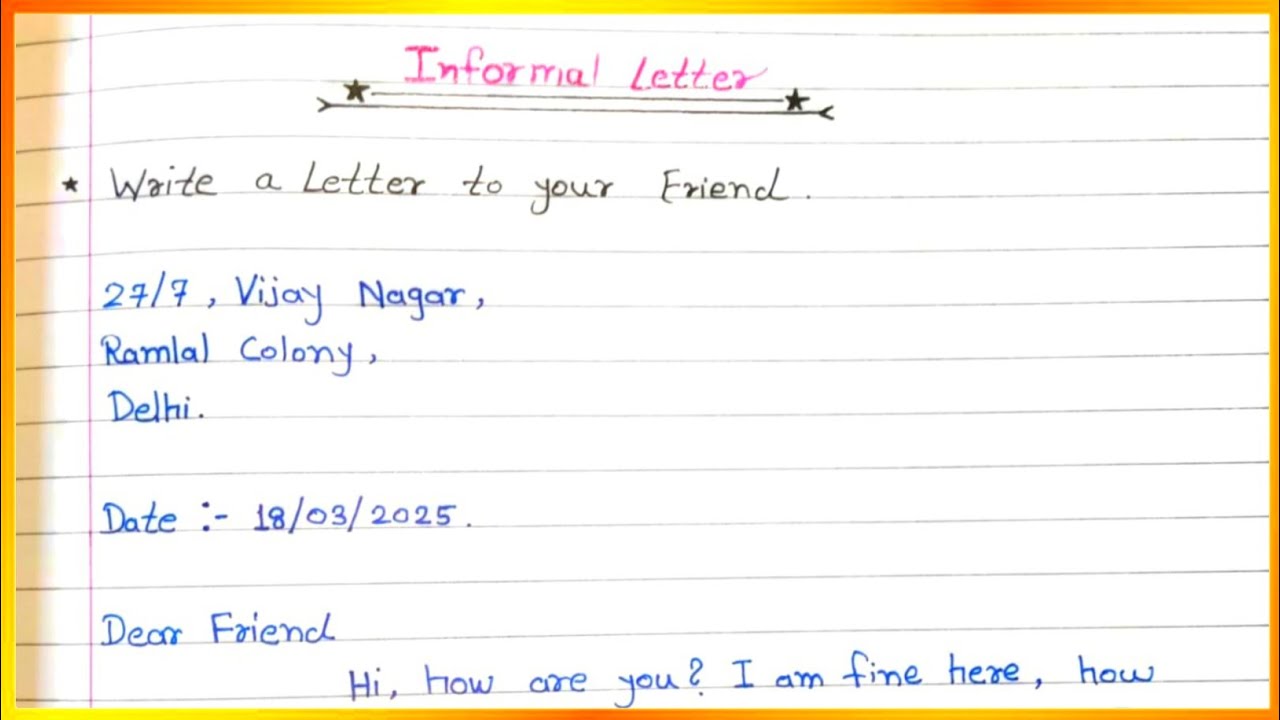 Informal Letter
★ Write a Letter to your Friend.
27/7, Vijay Nagar,
Ramlal Colony,
Delhi.
Date :- 18/03/2025.
Dear Friend
Hi, how are you? I am fine here, how